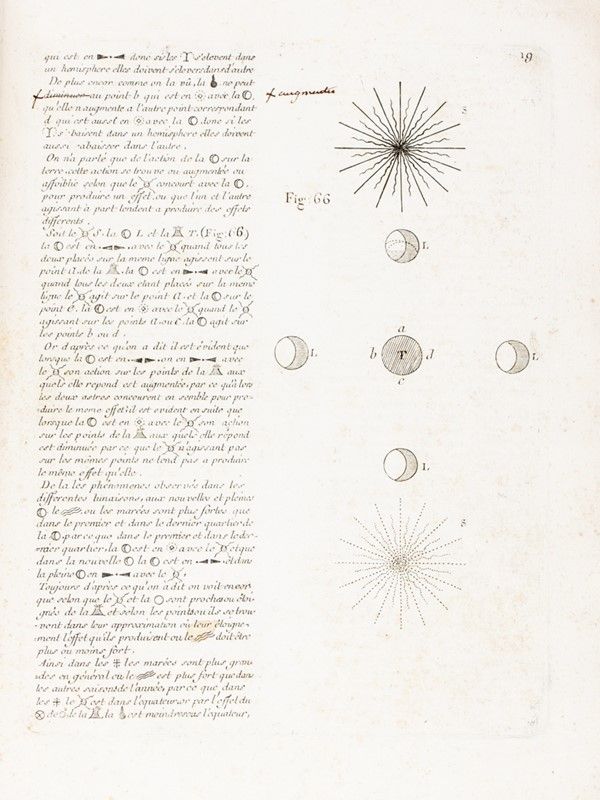 qui est en donc si les s'elevent dans
un hemisphere elles doivent s'elever dans d'autre
De plus encor comme on la vû, la ne peut
diminuer au point b qui est en avec la
qu'elle n'augmente a l'autre point correspondant
d qui est aussi en avec la donc si les
baisent dans un hemisphere elles doivent
aussi abaisser dans l'autre.
On n'a parté que de l'action de la sur la
terre cette action se trouve ou augmentée ou
affoiblie selon que le concourt avec la
pour produire un effet ou que l'un et l'autre
agissant à part tendent a produire des effets
differents.
Soit le S. la L et la T. (Fig: 66)
la est en avec le quand tous les
deux placés sur la meme ligne agissent sur le
point A. de la , la est en avec le
quand tous les deux etant placés sur la meme
ligne le agit sur le point A. et la sur le
point C. la est en avec le quand le
agissant sur les points A ou C. la agit sur
les points b ou d.
Or d'après ce qu'on a dit il est évident que
lorsque la est en ou en avec
le son action sur les points de la aux
quels elle repond est augmentée par ce qu'alors
les deux astres concourent en semble pour pro-
duire le meme effet il est evident en suite que
lorsque la est en avec le son action
sur les points de la aux quels elle répond
est diminuée par ce que le n'agissant pas
sur les mêmes points ne tend pas a produire
le même effet qu'elle.
De la les phénomenes observés dans les
differentes lunaisons, aux nouvelles et pleines
le ou les marées sont plus fortes que
dans le premier et dans le dernier quartier de
la , par ce que dans le premier et dans le der-
nier quartier, la est en avec le et que
dans la nouvelle la est en et dans
la pleine en avec le ;
Toujours d'après ce qu'on a dit on voit encor
que selon que le et la sont proches ou éloi-
gnés de la et selon les points ou ils se trou
vent dans leur approximation où leur éloigne-
ment l'effet qu'ils produisent ou le doit être
plus ou moins fort.
Ainsi dans les les marées sont plus gran
des en général ou le est plus fort que dans
les autres saisons de l'année, par ce que dans
les le est dans l'equateur or par l'effet du
de de la , la est moindre sous l'equateur,
+ augmenter
19
S
Fig: 66
L
a
L b T d L
c
L
S